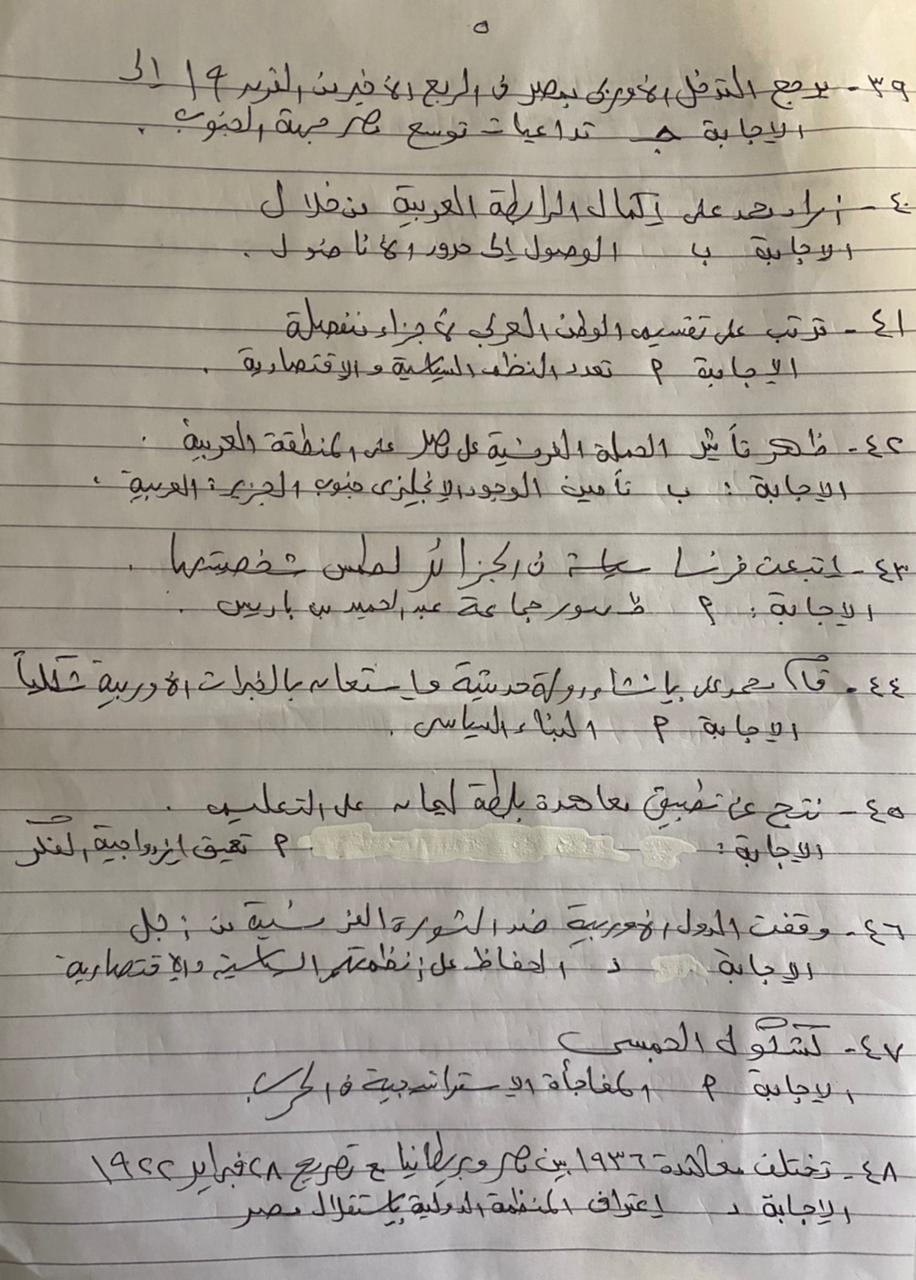 ٥
٣٩- يرجع التدخل الأوربى بمصر فى الربع الأخير من القرن ١٩ إلى
الإجابة جـ تداعيات توسع مصر جهة الجنوب .
٤٠- أراد محمد على إكمال الرابطة العربية من خلال
الإجابة ب الوصول إلى حدود الأناضول .
٤١- ترتب على تقسيم الوطن العربى لأجزاء منفصلة
الإجابة م تعدد النظم السياسية والاقتصادية .
٤٢- ظهر تأثير الحملة الفرنسية على مصر على المنطقة العربية .
الإجابة : ب تأمين الوجود الإنجليزى جنوب الجزيرة العربية .
٤٣- اتبعت فرنسا سياسة فى الجزائر لطمس شخصيتها .
الإجابة : م ظهور جماعة عبد الحميد بن باريس .
٤٤- قام محمد على بإنشاء دولة حديثة واستعان بالخبرات الأوربية شكلياً
الإجابة م البناء السياسى .
٤٥- نتج عن تطبيق معاهدة بلطة ليمان على التعليم .
الإجابة : م تعميق ازدواجية الفكر
٤٦- وقفت الدول الأوربية ضد الثورة الفرنسية من أجل
الإجابة د الحفاظ على أنظمتهم السياسية والاقتصادية
٤٧- كشكول الحمسى
الإجابة م المفاجأة الاستراتيجية فى الحرب
٤٨- تختلف معاهدة ١٩٣٦ بين مصر وبريطانيا مع تصريح ٢٨ فبراير ١٩٢٢
الإجابة د اعتراف المنظمة الدولية باستقلال مصر